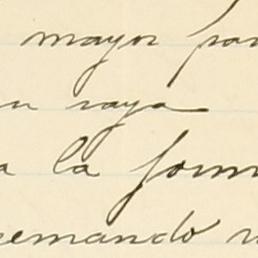 mayor par
raya
a la form
emando